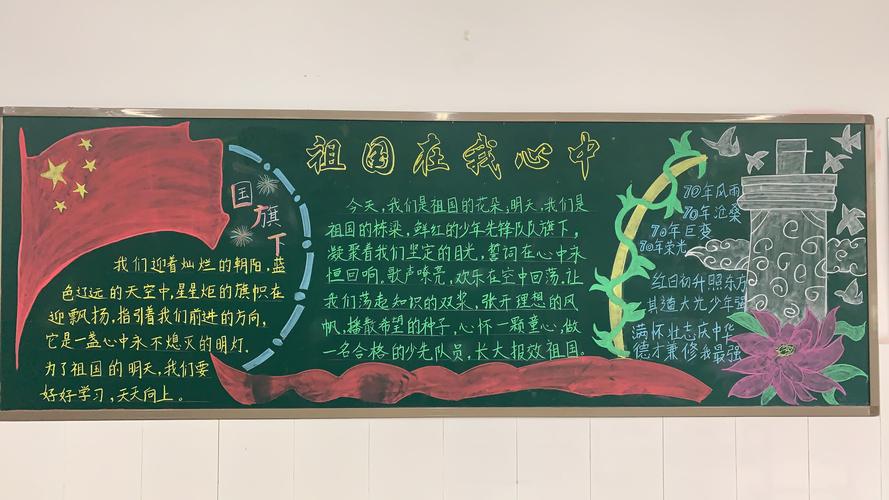 祖国在我心中
国旗下
我们迎着灿烂的朝阳,蓝
色辽远的天空中,星星炬的旗帜在
迎飘扬,指引着我们前进的方向,
它是一盏心中永不熄灭的明灯.
为了祖国的明天,我们要
好好学习,天天向上。
今天,我们是祖国的花朵;明天,我们是
祖国的桥梁,鲜红的少年先锋队队旗下,
凝聚着我们坚定的目光,誓词在心中永
恒回响.歌声嘹亮,欢乐在空中回荡.让
我们荡起知识的双桨,张开理想的风
帆,播散希望的种子,心怀一颗童心,做
一名合格的少先队员,长大报效祖国。
70年风雨
70年沧桑
70年巨变
70年荣光
红日初升照东方
其道大光少年强
满怀壮志庆中华
德才兼修我最强